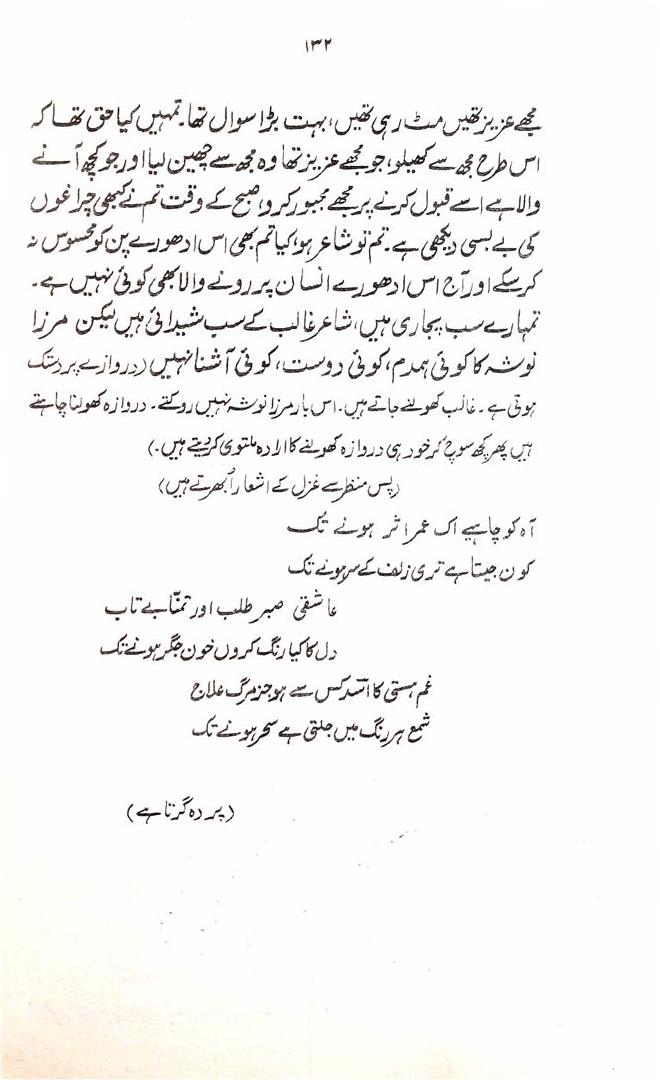 ۱۳۲
مجھے عزیز تھیں مٹ رہی تھیں، بہت بڑا سوال تھا۔ تمہیں کیا حق تھا کہ
اس طرح مجھ سے کھیلو، جو مجھے عزیز تھا وہ مجھ سے چھین لیا اور جو کچھ آنے
والا ہے اسے قبول کرنے پر مجھے مجبور کرو، صبح کے وقت تم نے کبھی چراغوں
کی بے بسی دیکھی ہے۔ تم تو شاعر ہو، کیا تم بھی اس ادھورے پن کو محسوس نہ
کر سکے اور آج اس ادھورے انسان پر رونے والا بھی کوئی نہیں ہے۔
تمہارے سب پجاری ہیں، شاعر غالب کے سب شیدائی ہیں لیکن مرزا
نوشہ کا کوئی ہمدم، کوئی دوست، کوئی آشنا نہیں (دروازے پر دستک
ہوتی ہے۔ غالب کھولنے جاتے ہیں۔ اس بار مرزا نوشہ نہیں روکتے۔ دروازہ کھولنا چاہتے
ہیں پھر کچھ سوچ کر خود ہی دروازہ کھولنے کا ارادہ ملتوی کر دیتے ہیں۔)
(پس منظر سے غزل کے اشعار اُبھرتے ہیں)
آہ کو چاہیے اک عمر اثر ہونے تک
کون جیتا ہے تری زلف کے سر ہونے تک
عاشقی صبر طلب اور تمنّا بے تاب
دل کا کیا رنگ کروں خون جگر ہونے تک
غم ہستی کا اسدؔ کس سے ہو جز مرگ علاج
شمع ہر رنگ میں جلتی ہے سحر ہونے تک
(پردہ گرتا ہے)